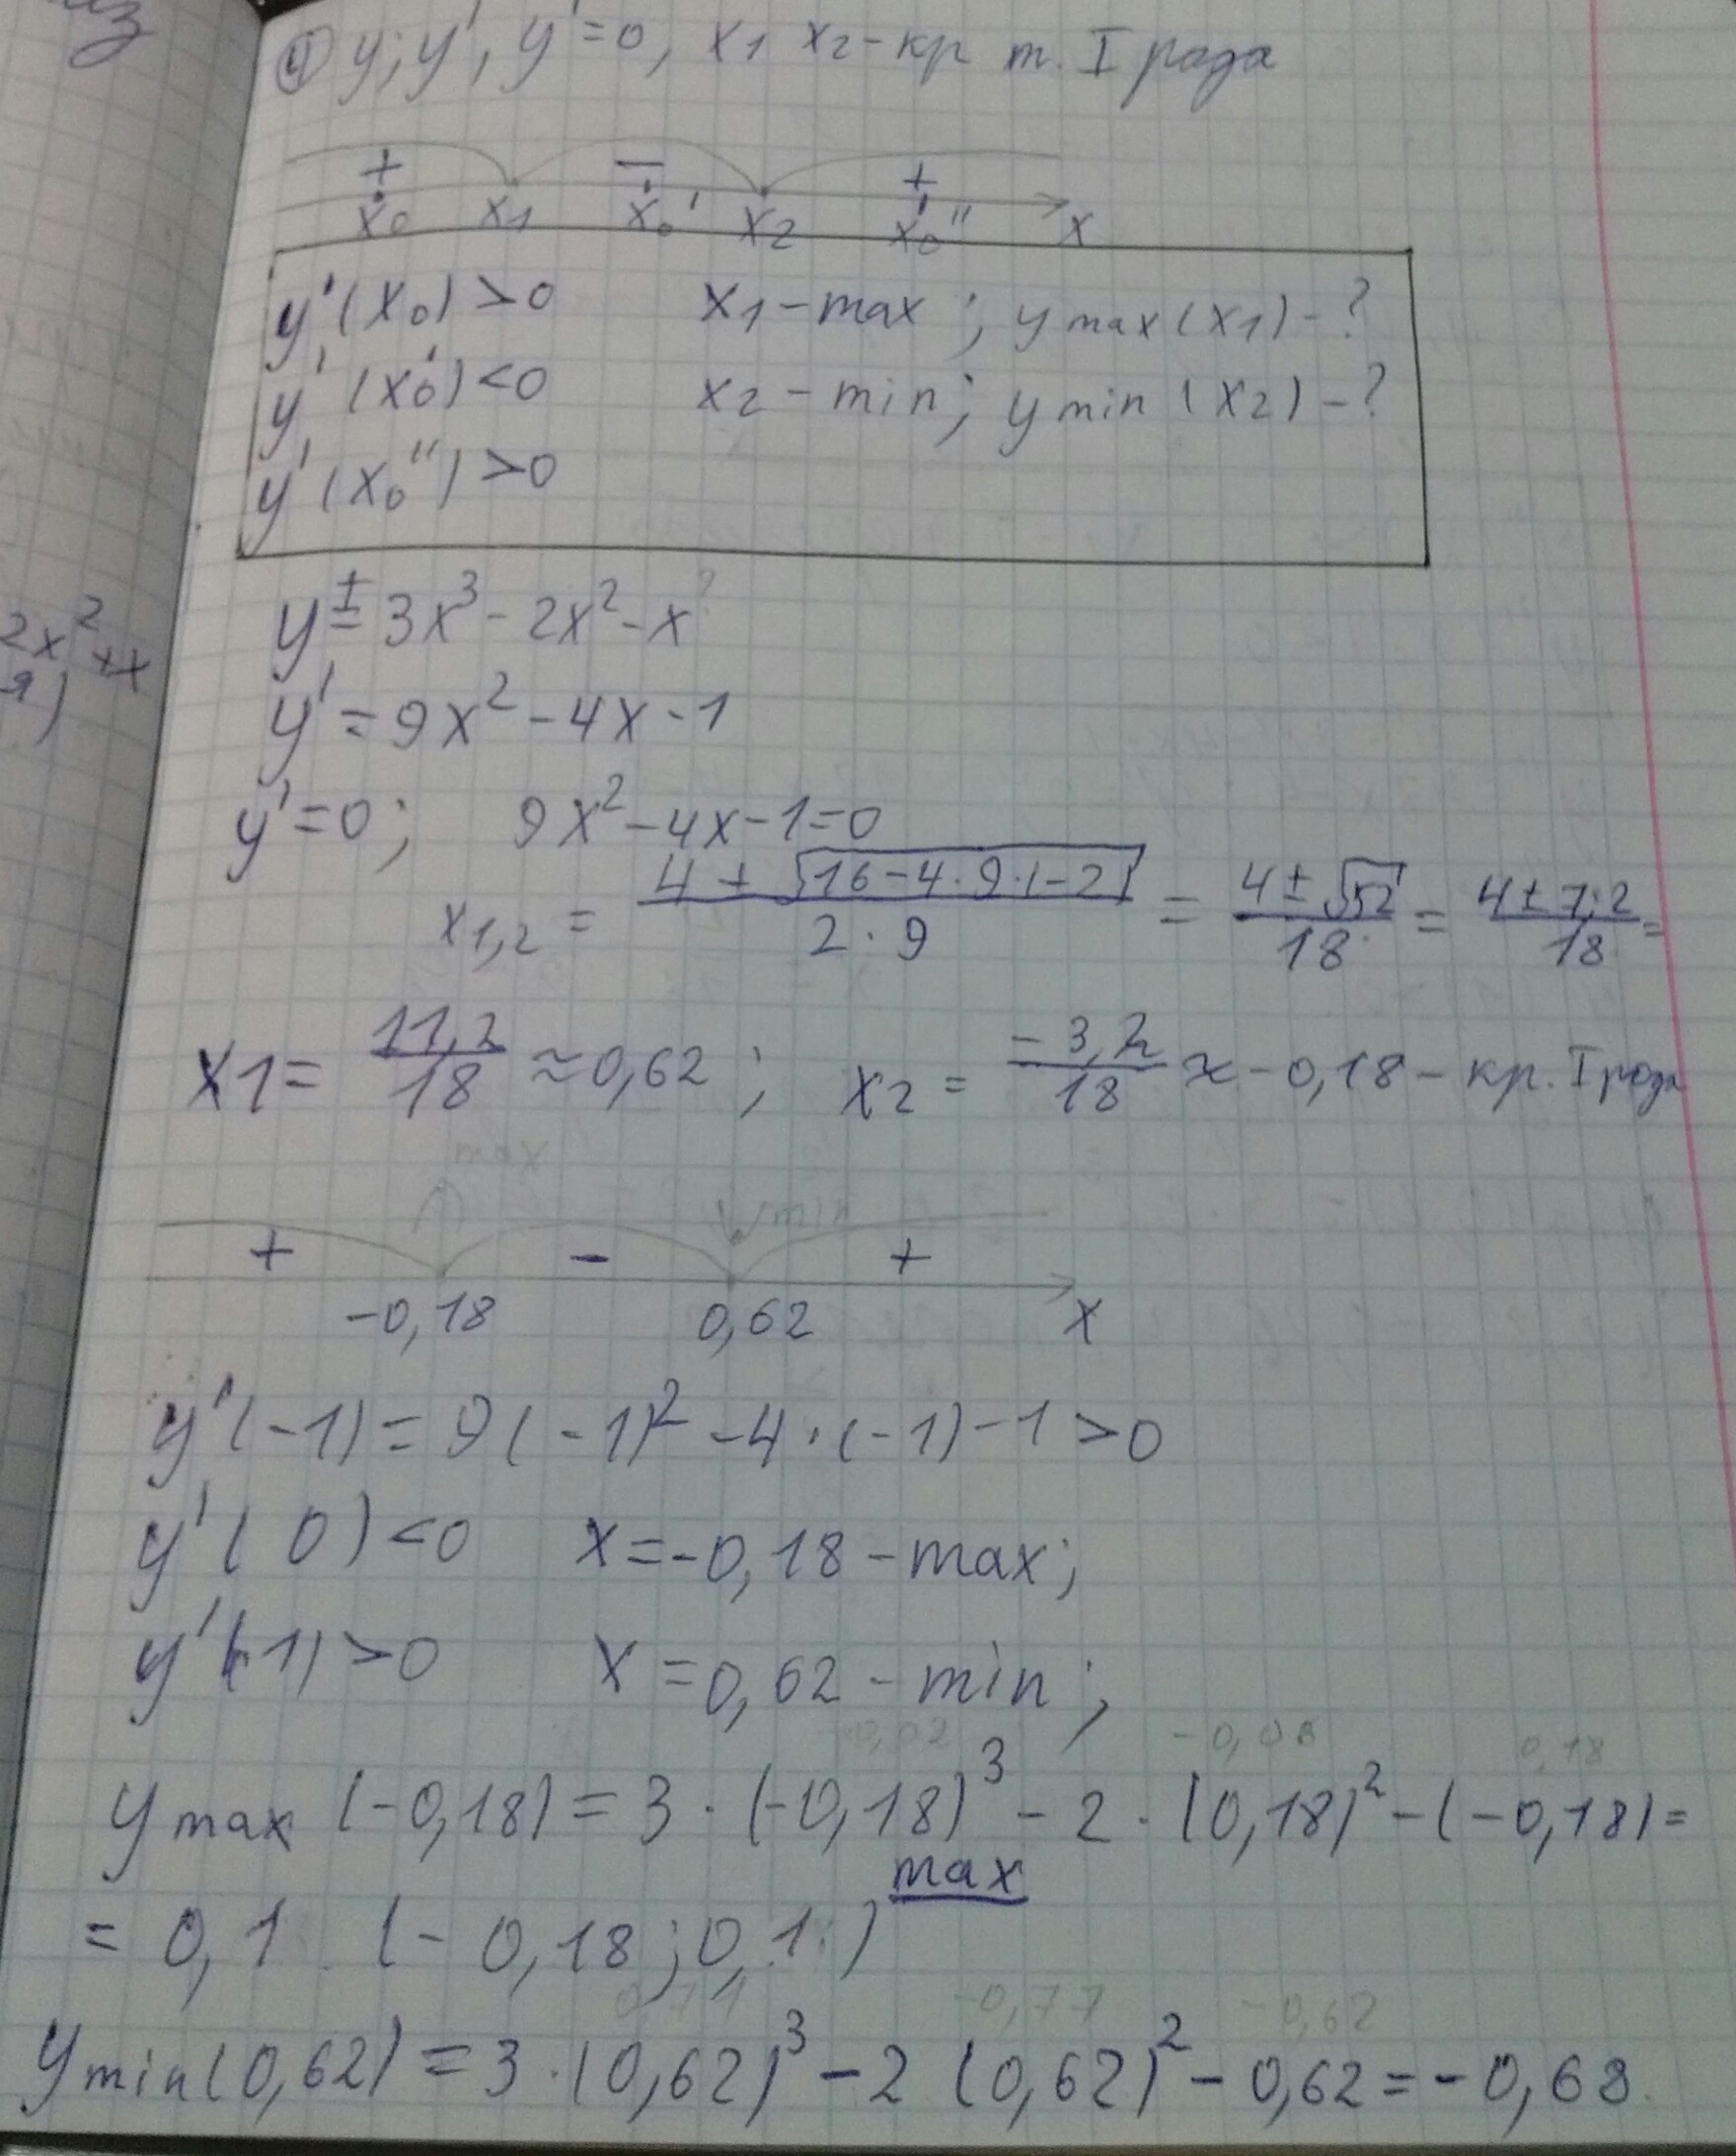 ④ y; y', y'=0, x1 x2 - кр т. I рода
+ − +
x0 x1 x0' x2 x0'' x
y'(x0) >0 x1 - max ; y max (x1) - ?
y'(x0') <0 x2 - min ; y min (x2) - ?
y'(x0'') >0
y ± 3x³ - 2x² - x ?
2x² + x
y' = 9x² - 4x - 1
я)
y' = 0 ; 9x² - 4x - 1 = 0
x1,2 = (4 ± √(16 - 4·9·1-2))/(2·9) = (4 ± √52)/18 = (4 ± 7,2)/18 =
x1 = 11,2/18 ≈ 0,62 ; x2 = -3,2/18 ≈ -0,18 - кр. I рода
max
min
+ - +
-0,18 0,62 x
y'(-1) = 9(-1)² - 4·(-1) - 1 > 0
y'(0) < 0 x = -0,18 - max;
y'(1) > 0 x = 0,62 - min ;
-0,02 -0,06 0,18
y max (-0,18) = 3 · (-0,18)³ - 2 · (0,18)² - (-0,18) =
= 0,1 (-0,18 ; 0,1) max
0,71 -0,77 -0,62
y min (0,62) = 3 · (0,62)³ - 2 (0,62)² - 0,62 = -0,68